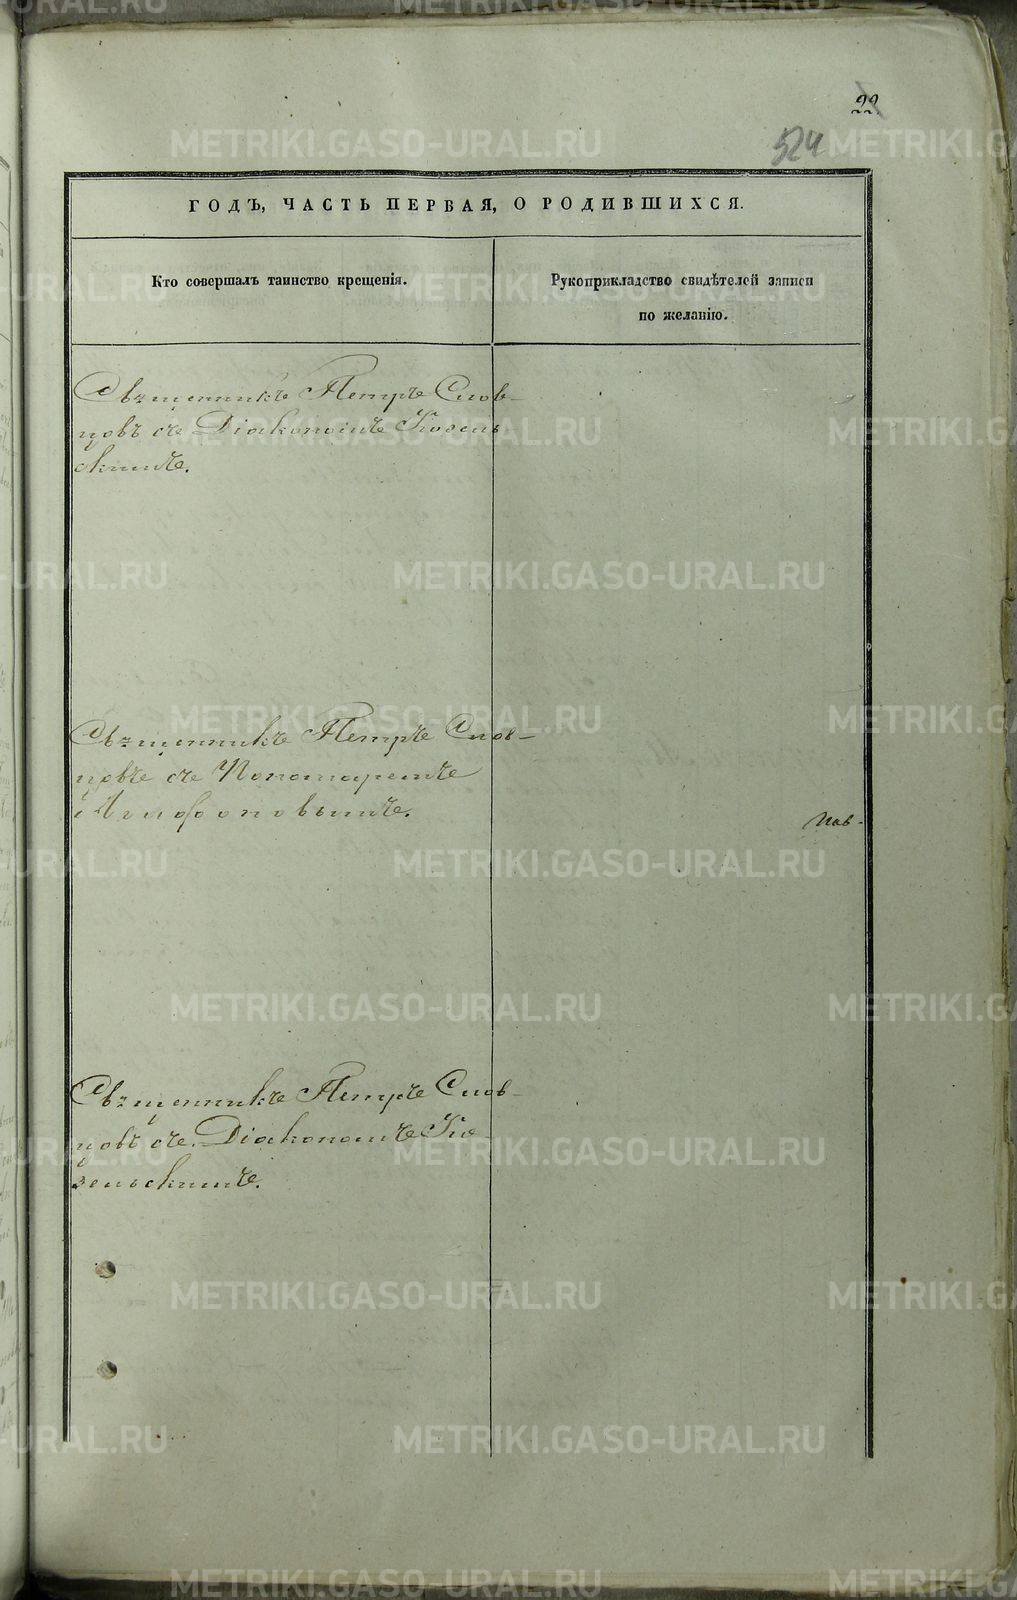 22
524
ГОДЪ, ЧАСТЬ ПЕРВАЯ, О РОДИВШИХСЯ.
Кто совершалъ таинство крещенія.
Рукоприкладство свидѣтелей записи
по желанію.
Священникъ Петръ Слов-
цовъ съ Діакономъ
скимъ.
Священникъ Петръ Слов-
цовъ съ Пономаремъ
Священникъ Петръ Слов-
цовъ съ Діакономъ
METRIKI.GASO-URAL.RU